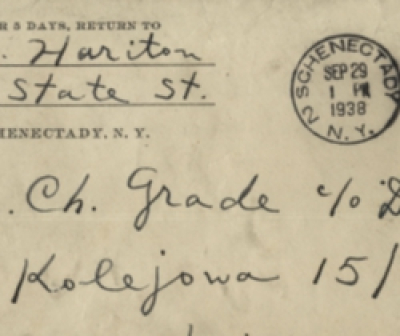 R 5 DAYS, RETURN TO
. Hariton
State St.
HENECTADY, N. Y.
SCHENECTADY
2
SEP 29
1 PM
1938
N. Y.
. Ch. Grade c/o D
Kolejowa 15/